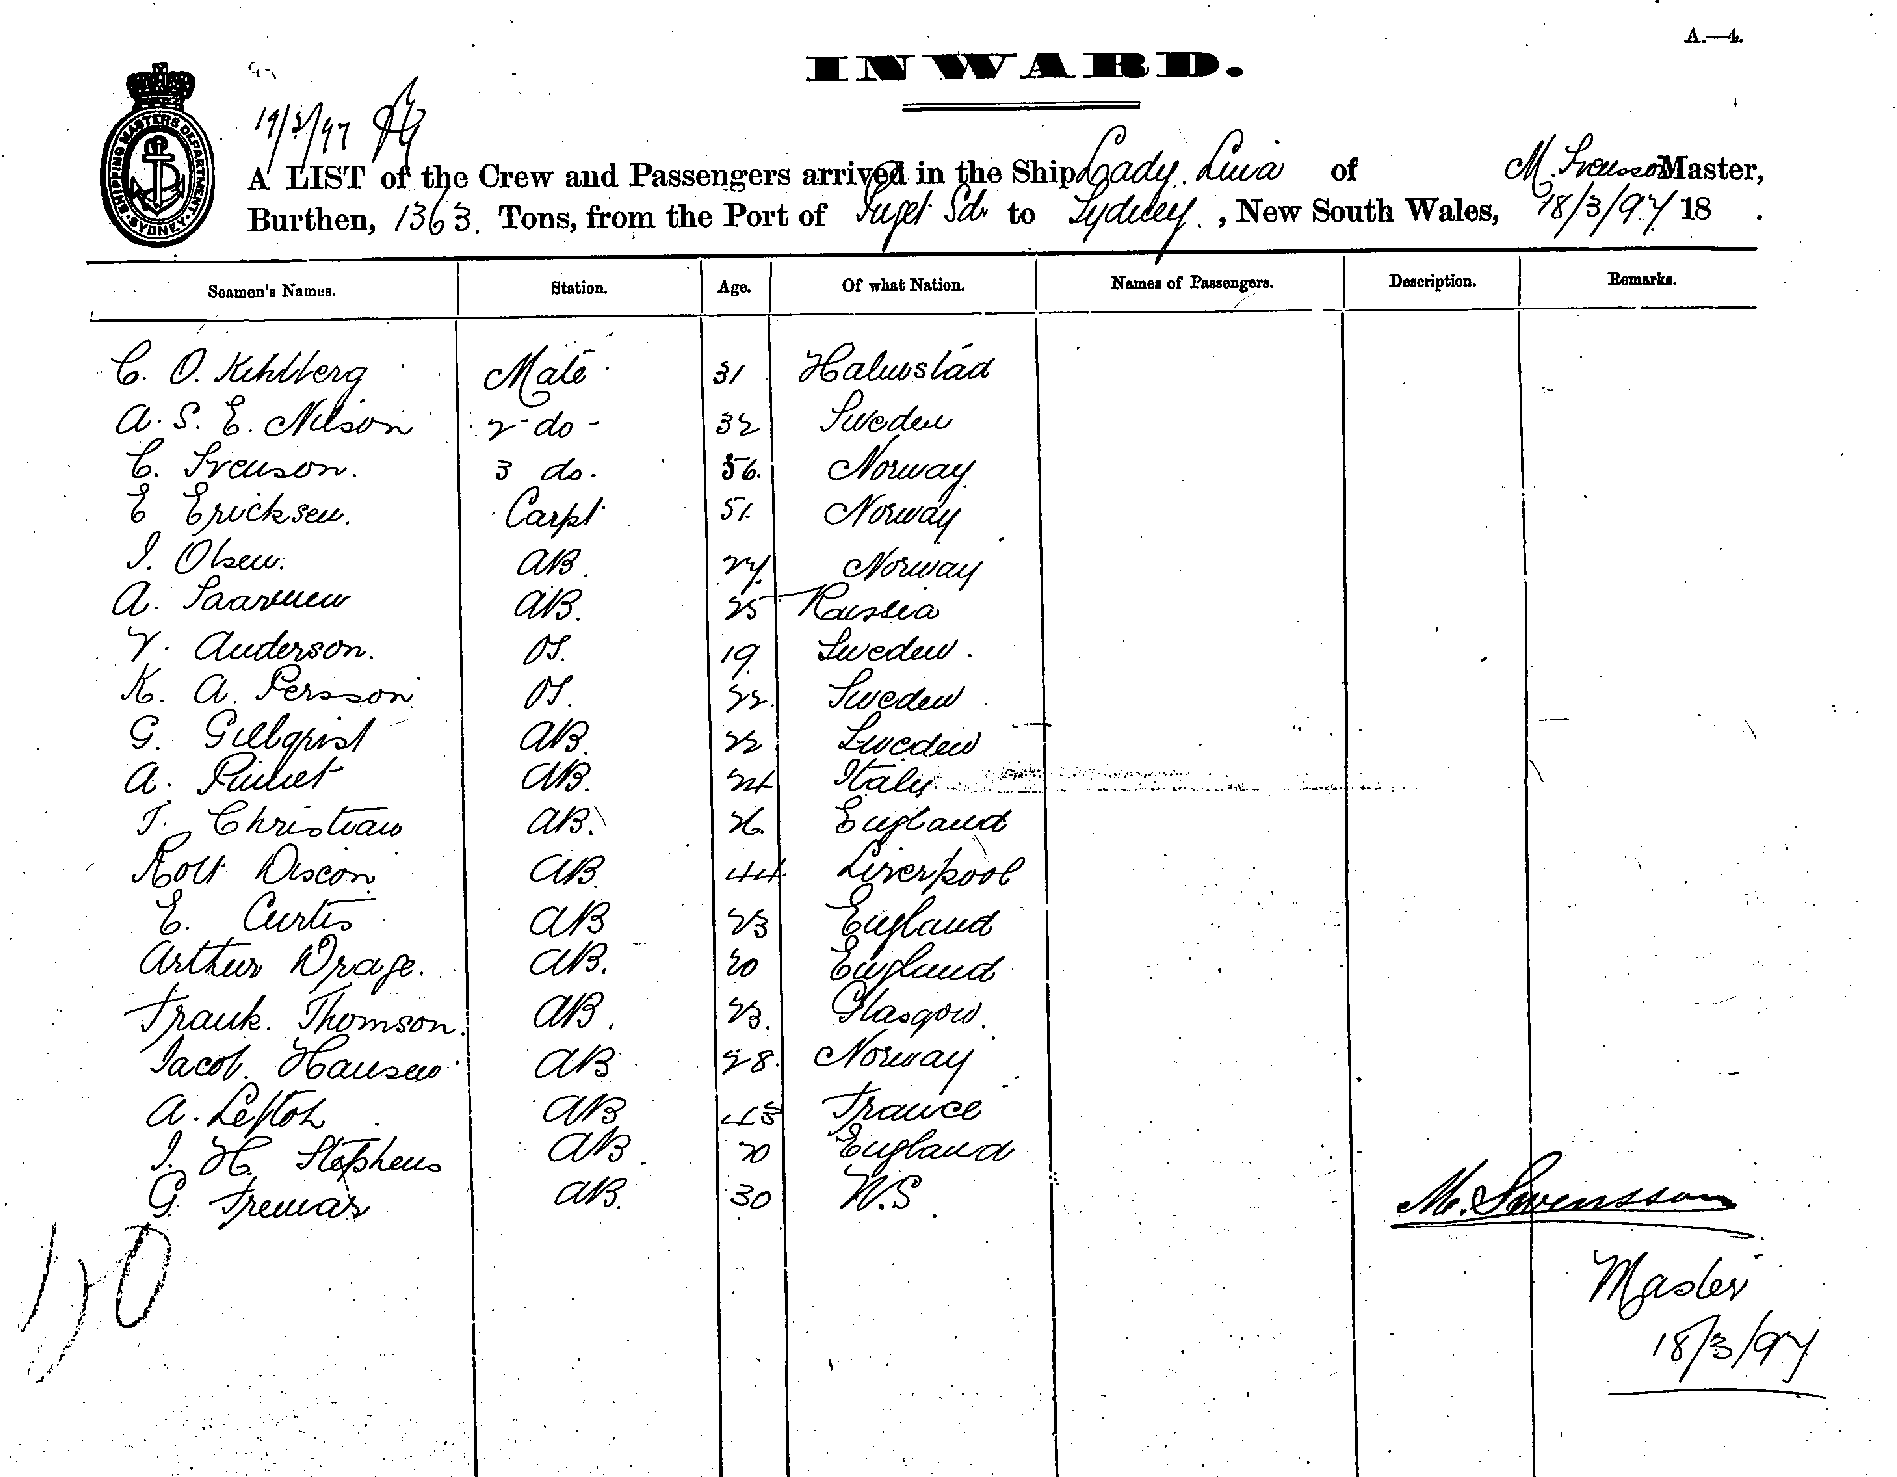 A.—4.
INWARD.
SHIPPING MASTERS DEPARTMENT SYDNEY
19/3/97
A LIST of the Crew and Passengers arrived in the Ship Lady Lina of M. Svensson Master,
Burthen, 1363. Tons, from the Port of Puget Sd. to Sydney, New South Wales, 18/3/97 18 .
Seamen's Names. Station. Age. Of what Nation. Names of Passengers. Description. Remarks.
C. O. Kihlberg Mate 31 Halmstad
A. S. E. Nilson 2 do - 32 Sweden
C. Svenson. 3 do. 56. Norway
E Ericksen. Carpt 51. Norway
J. Olsen. AB. 27. Norway
A. Saarinen AB. 25 Russia
V. Anderson. OS. 19. Sweden.
K. A. Persson OS. 22. Sweden
G. Gillqrist AB. 22 Sweden
A. AB. 24 Italy
T. Christian AB. 26. England
Robt Discon AB. 44 Liverpool
E. Curtis AB 23 England
Arthur Drage. AB. 20 England
Frank. Thomson. AB. 23. Glasgow.
Jacob. Hansen AB 28. Norway
A. AB 45 France
J. H. Stephens AB. 20 England
G. AB. 30
M. Swensson
Master
18/3/97